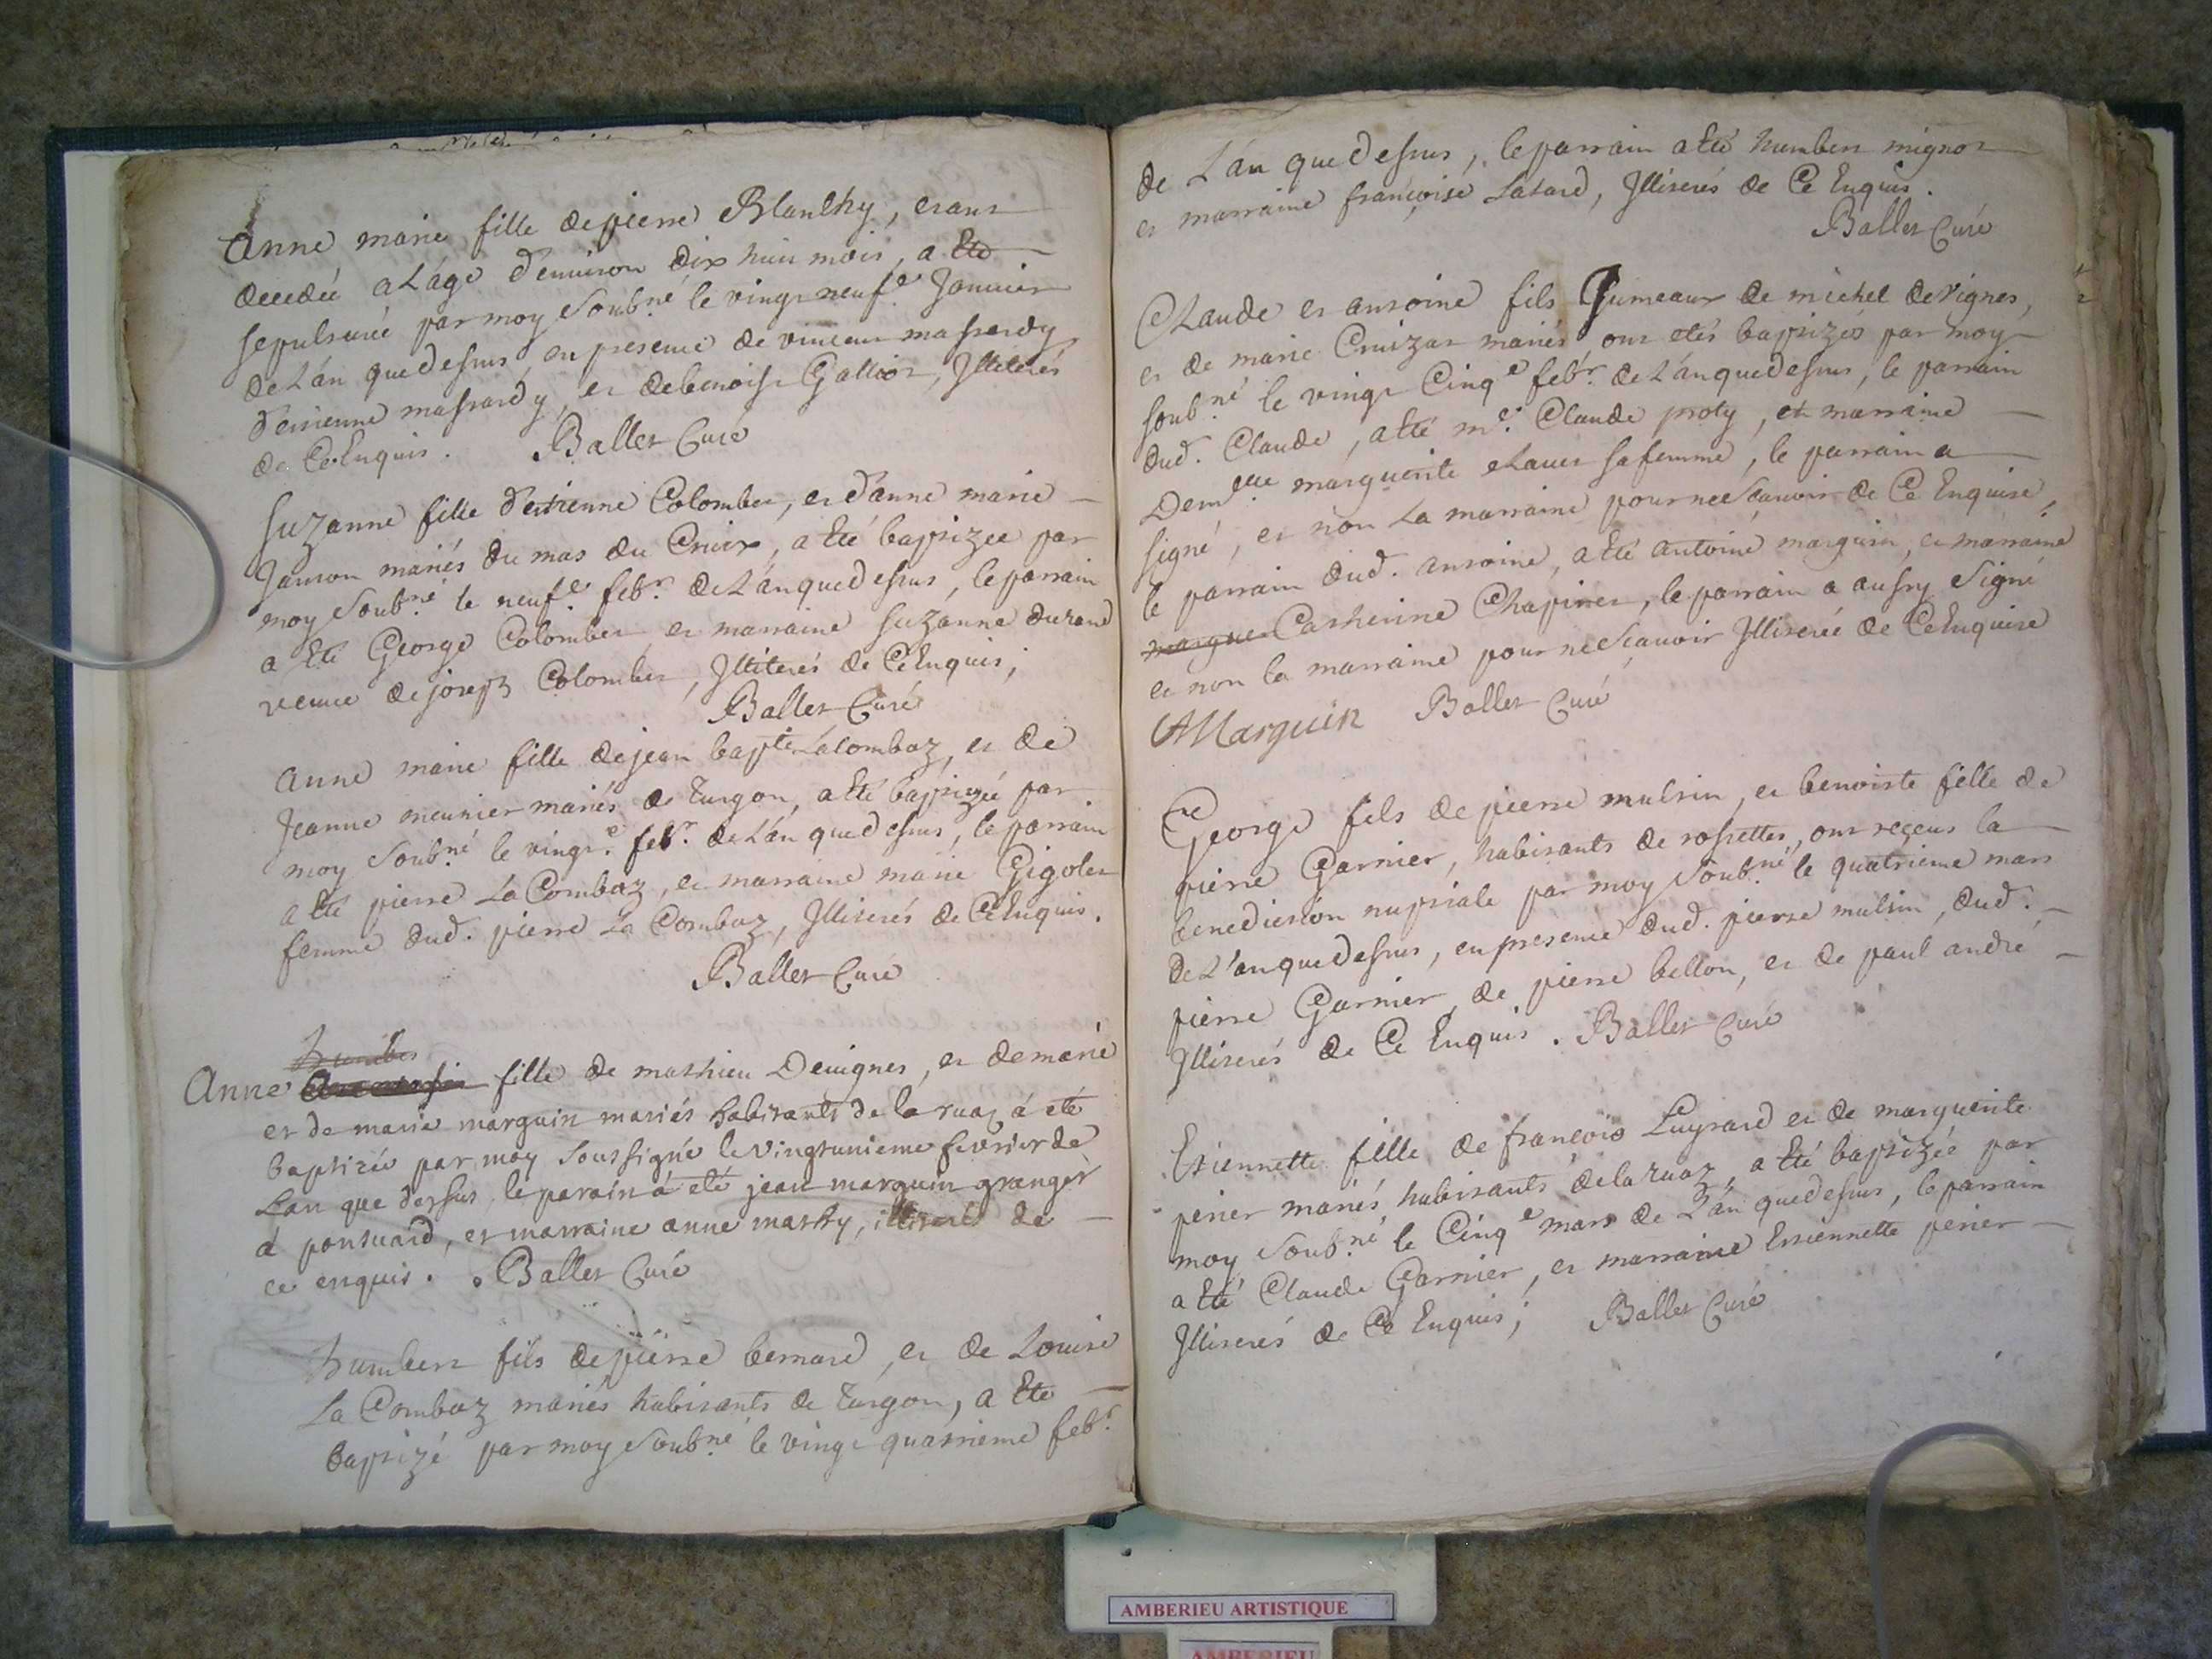 Anne marie fille de pierre Blanchy, etant
decedée a L'age d'environ dix huit mois, a Eté
sepulturée par moy Soub.né le vingt neuf.e Janvier
de L'án que dessus, en presence de vincent massardy
d'estienne massardy, et de benoist Gallior, Illiterés
de Ce Enquis. Ballet Curé
Suzanne fille d'estienne Colombet, et d'anne marie
Janson mariés du mas du Cruix, a Eté baptizée par
moy Soub.né le neuf.e feb.r de L'án que dessus, le parrain
a Eté George Colombet et marraine Suzanne durand
veuve de joseph Colombet, Illiterés de Ce Enquis;
Ballet Curé
Anne marie fille de jean bap.te Lacombaz, et de
Jeanne meunier mariés de Turgon, a Eté baptizée par
moy Soub.né le vingt.e feb.r de L'án que dessus, le parrain
a Eté pierre La Combaz, et marraine marie Gigolet
femme dud. pierre La Combaz, Illiterés de Ce Enquis.
Ballet Curé
humber
Anne fille de mathieu Devignes, et de marie
et de marie marguin mariés habitants de la ruaz á eté
baptisée par moy Soussigné le vingtunieme fevrier de
L'an que dessus, le parain á eté jean marguin granger
á pontuard, et marraine anne mathy, illiterés de
ce enquis. Ballet Curé
humbert fils de pierre bernard, et de Louise
La Combaz mariés habitants de Turgon, a Eté
baptizé par moy Soub.né le vingt quatrieme feb.r
de L'án que dessus, le parrain a Eté humbert mignot
et marraine françoise Latard, Illiterés de Ce Enquis.
Ballet Curé
Claude et antoine fils Jumeaux de michel devignes,
et de marie Cruizat mariés ont etés baptizés par moy
soub.né le vingt Cinq.e feb.r de L'án que dessus, le parrain
dud. Claude, a Eté m.e Claude proty, et marraine
Dem.lle marguerite chavet sa femme, le parrain a
signé, et non La marraine pour ne Scavoir de Ce Enquise,
le parrain dud. antoine, a Eté antoine marguin, et marraine
marguer Catherine Chapinet, le parrain a aussy Signé
et non la marraine pour ne Scavoir Illiterée de Ce Enquise
AMarguin Ballet Curé
George fils de pierre mulsin, et benoiste fille de
pierre Garnier, habitants de rossettes, ont reçeus la
benediction nuptiale par moy Soub.né le quatrieme mars
de L'an que dessus, en presence dud. pierre mulsin, dud.
pierre Garnier, de pierre bellon, et de paul andré
Illiterés de Ce Enquis. Ballet Curé
Estiennette fille de françois Luysard et de marguerite
perier mariés habitants de la ruaz, a Eté baptizée par
moy Soub.né le Cinq.e mars de L'án que dessus, le parrain
a Eté Claude Garnier, et marraine Estiennette perier
Illiterés de Ce Enquis; Ballet Curé
AMBERIEU ARTISTIQUE
AMBERIEU